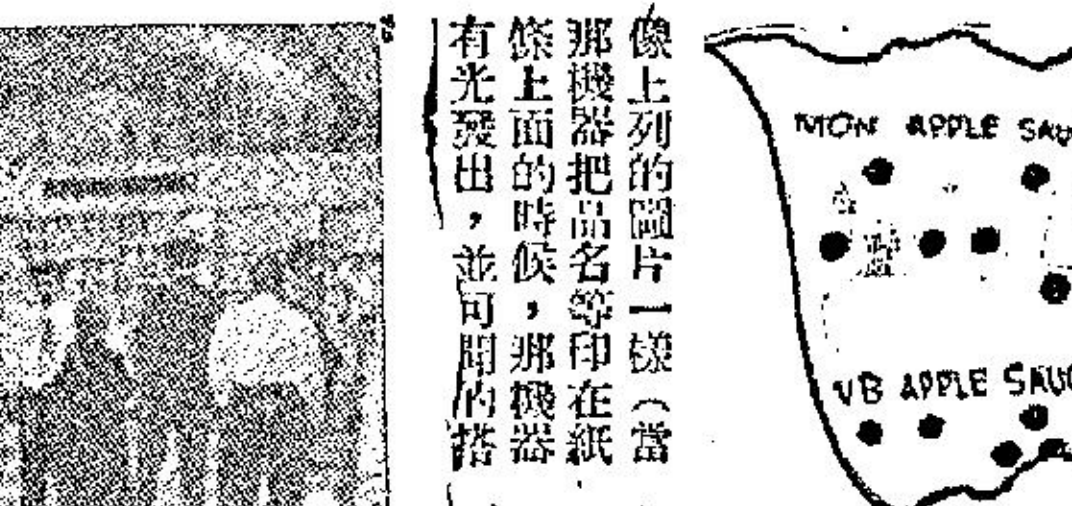 像上列的圖片一樣（當
那機器把品名等印在紙
條上面的時候，那機器
有光發出，並可聞的搭
MON APPLE SAU
VB APPLE SAUC